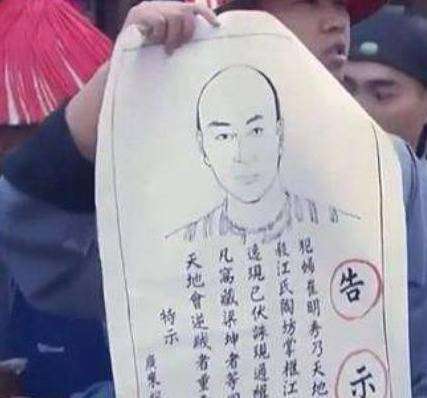 告示
犯婦崔明秀乃天地
殺江氏陶坊掌櫃江
逃現已伏誅現通緝
凡窩藏梁坤者等同
天地會逆賊者重
特示
廣東